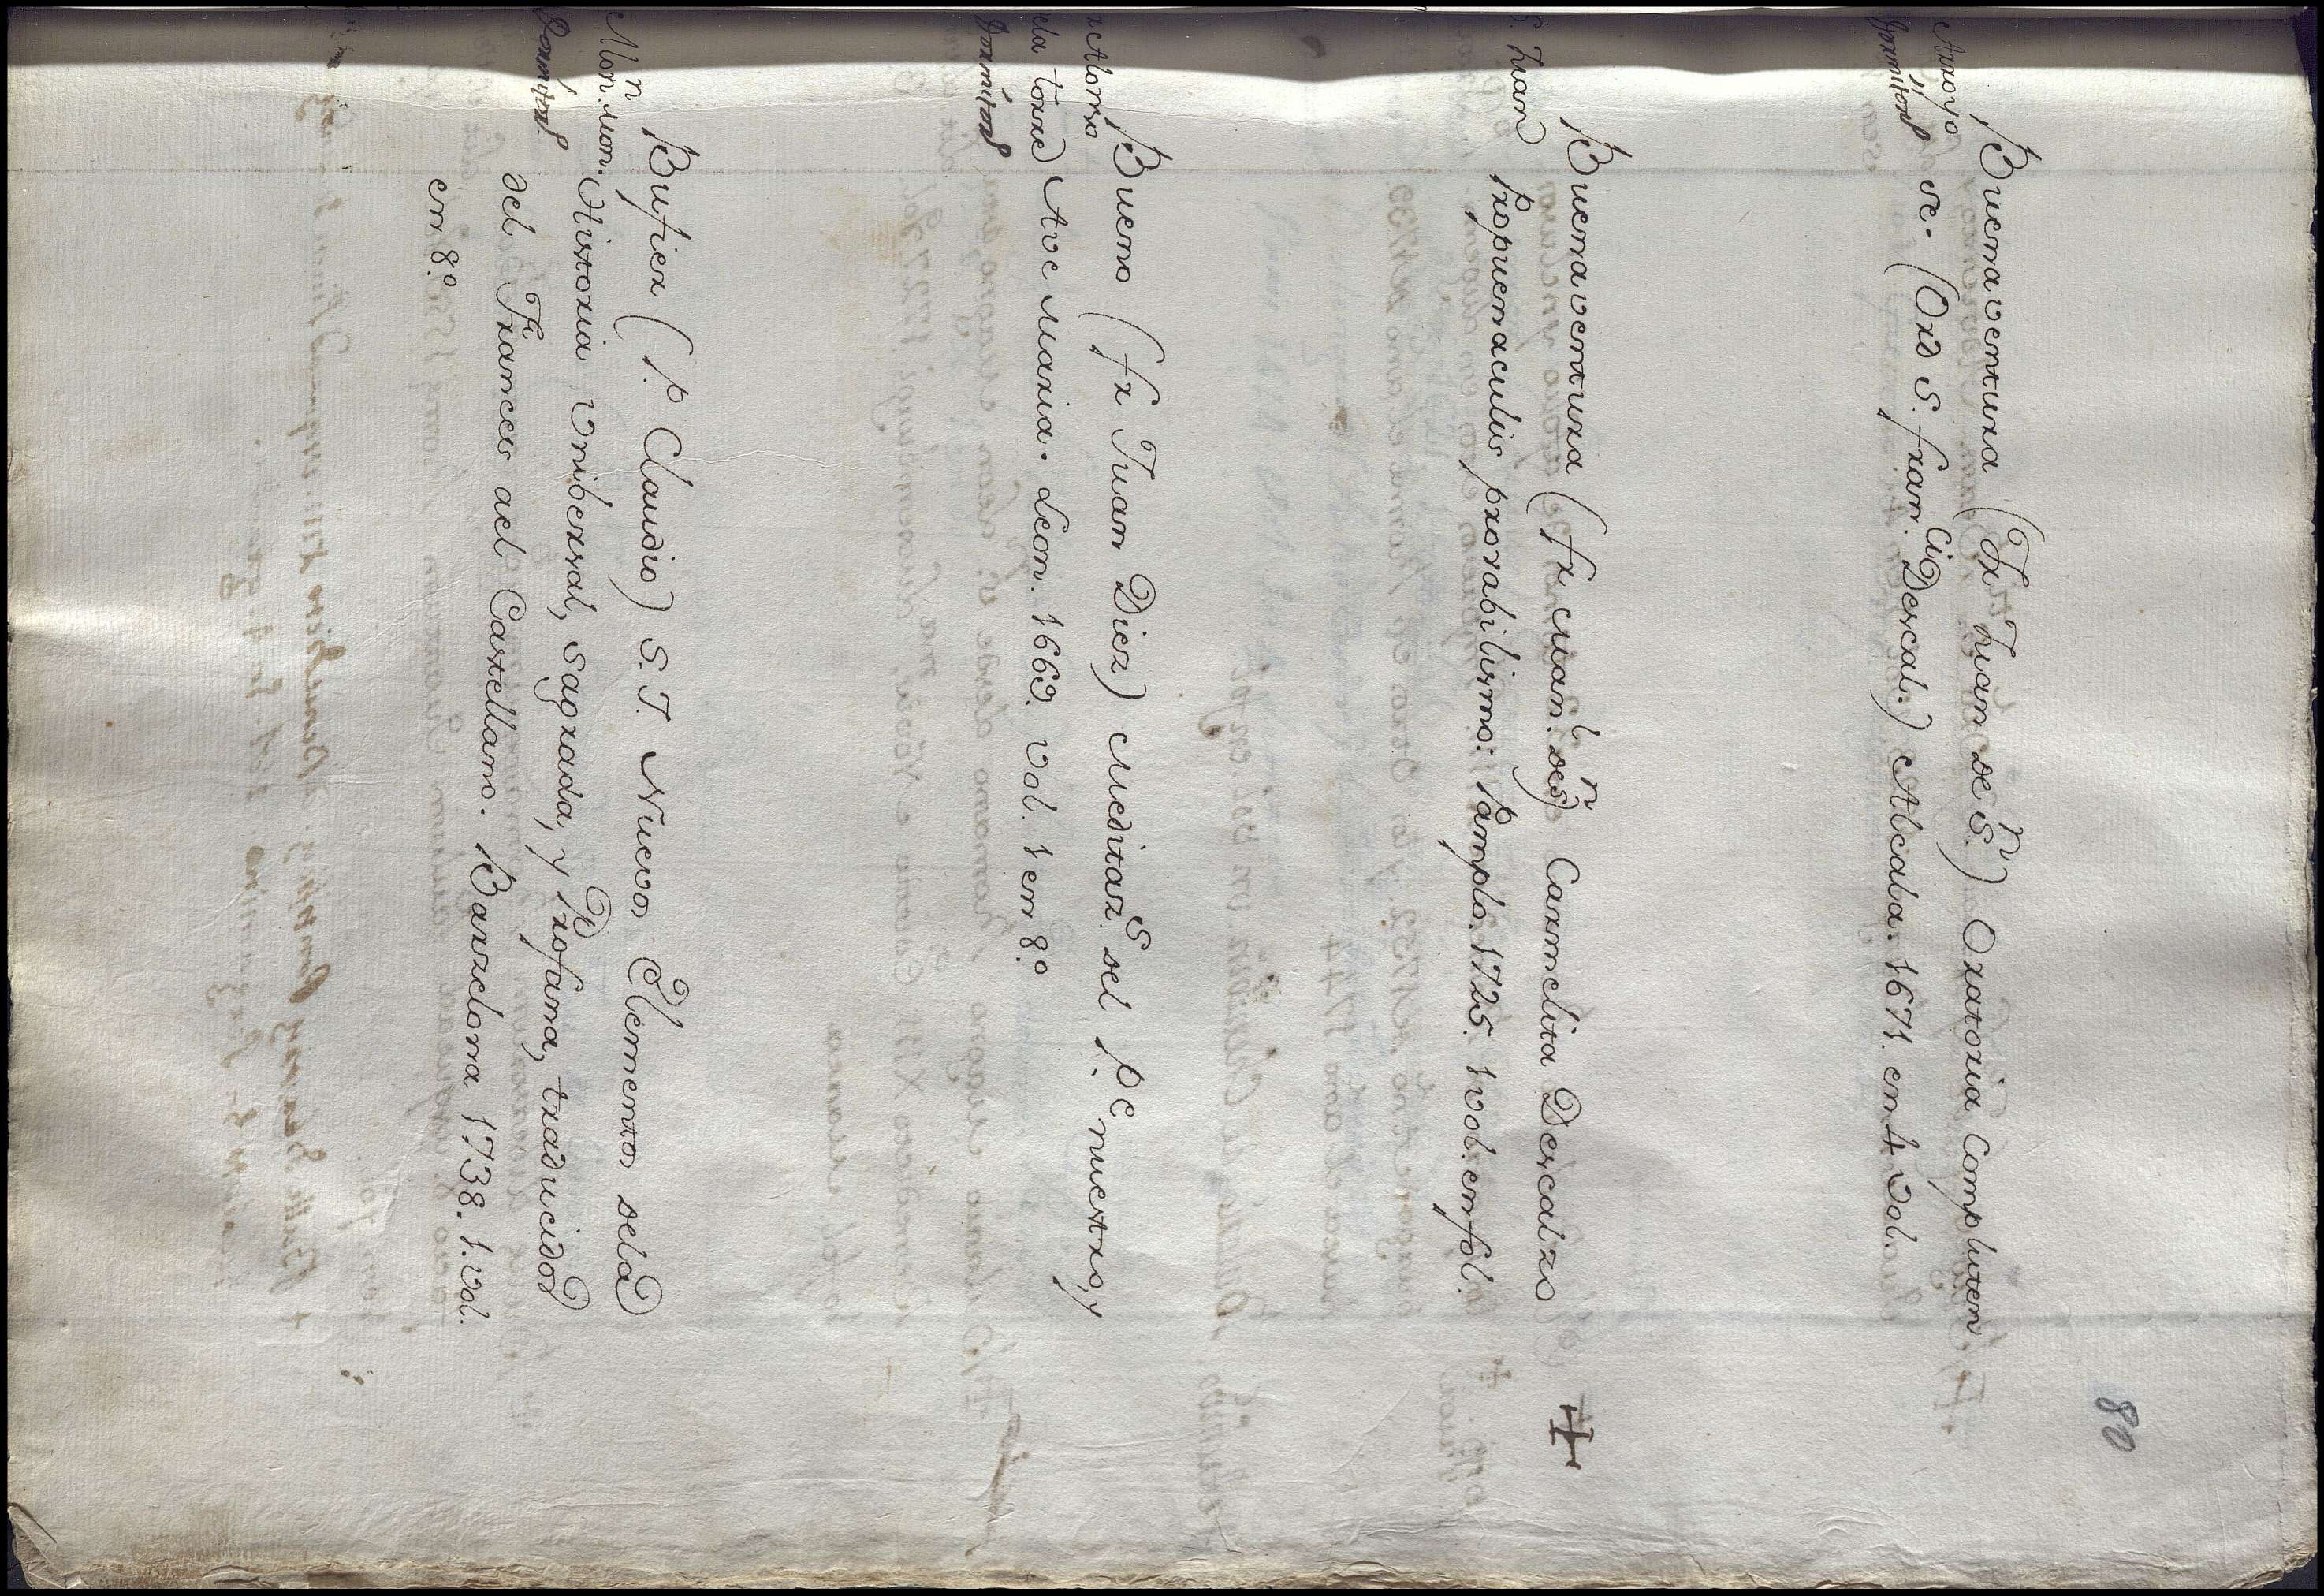 80
Arroyo
Dormitorio
Buenaventura (Fr Juan de S.n) Oratoria Compluten
se. (Ord S. fran.ci Descal.) Alcala. 1671. en 4 vol.
S. Juan
Buenaventura (fr Man.l de S.n) Carmelita Descalzo
Propuenaculis provabilismo: Pamplo. 1725. 1 vol. en fol.
Alonso
ela torre
Dormitorio
Bueno (fr Juan Diez) Meditaz.s del P.e nuestro, y
Ave Maria. Leon. 1669. vol. 1 en 8.o
Mon.n mon.
Dormitorio
Bufier (P. Claudio) S. J. Nuevo Elemento dela
Historia Vnibersal, Sagrada, y Profana, traducido
del Frances ael Castellano. Barzelona 1738. 1. vol.
en 8.o